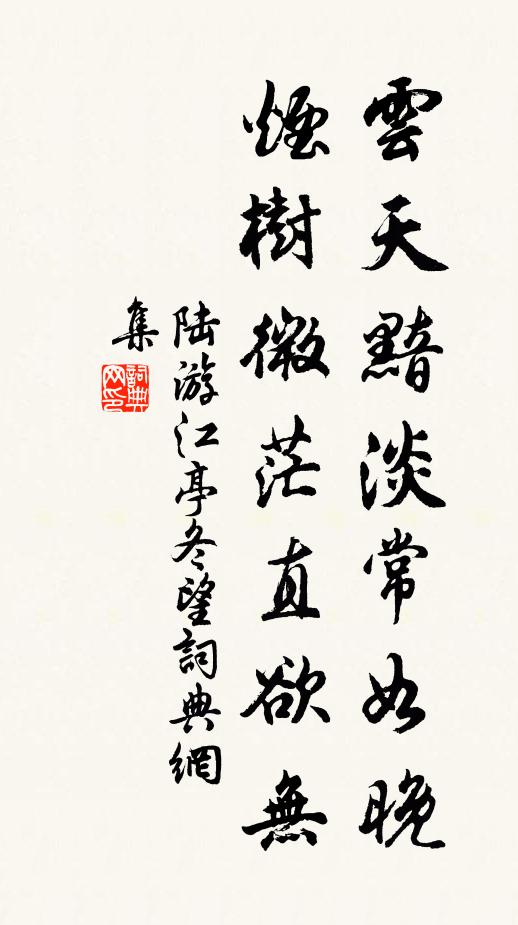 雲天黯淡常如晚
煙樹微茫直欲無
陆游江亭冬望詞典網
集
詞典网印